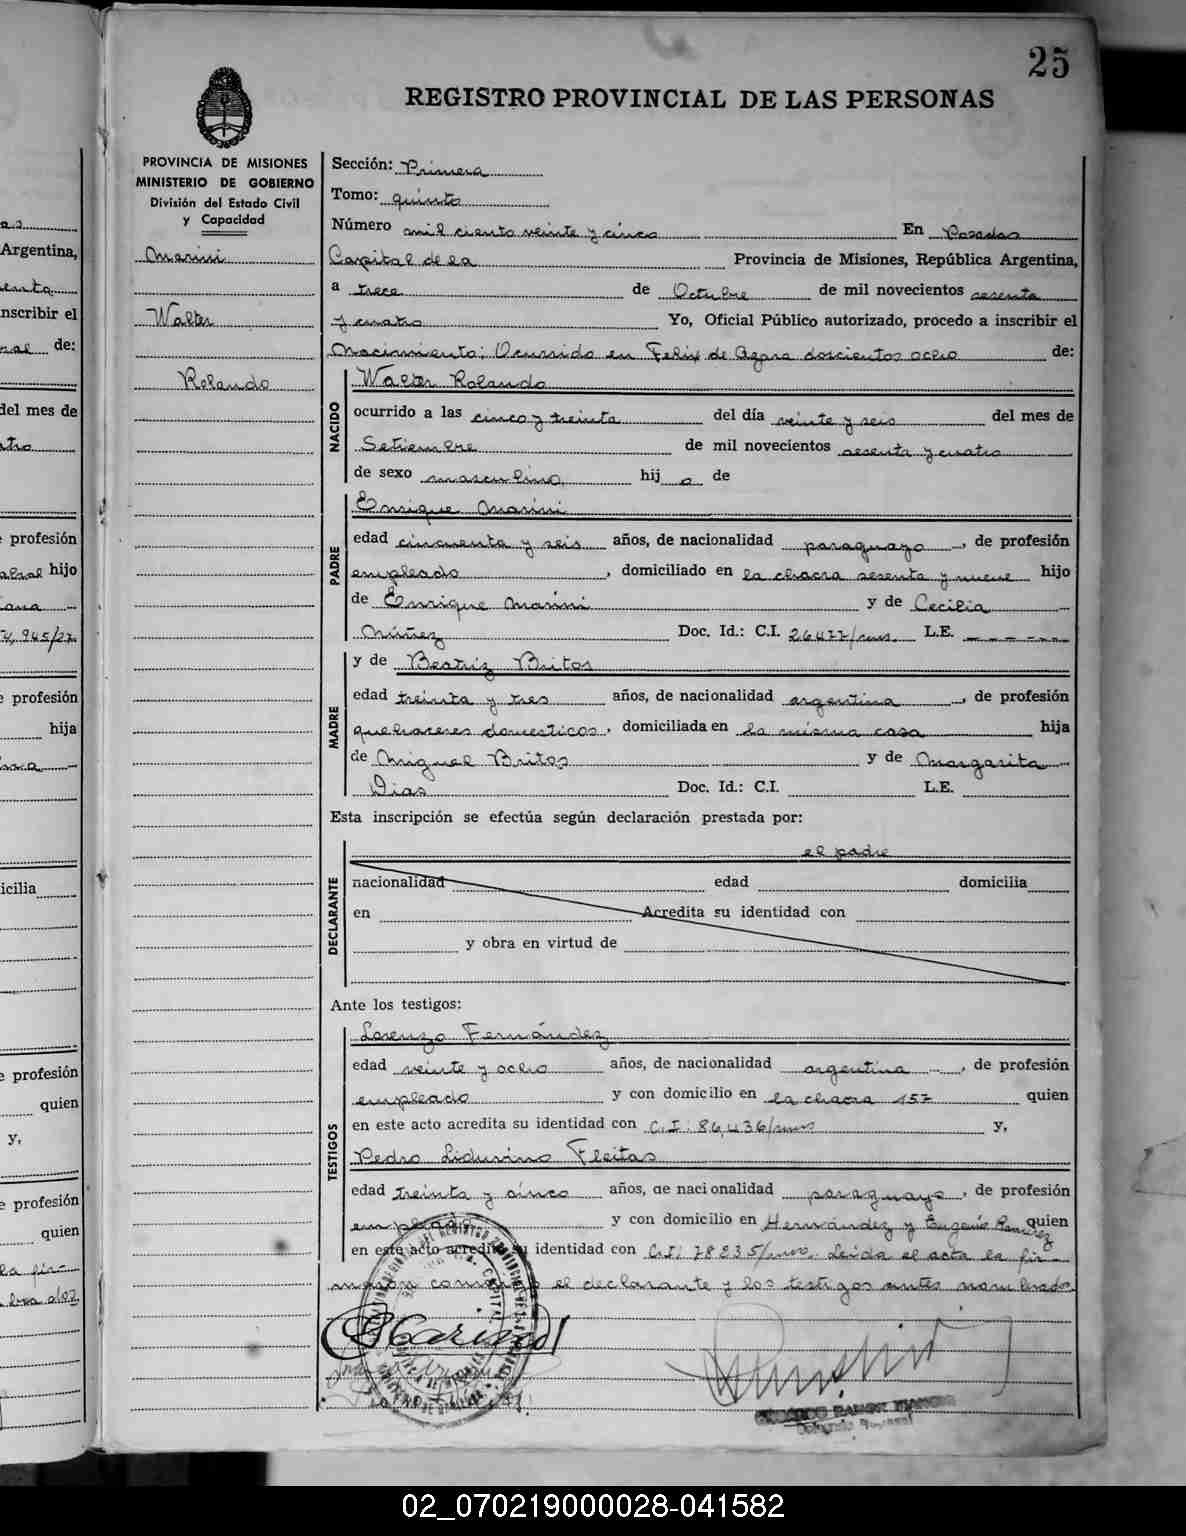 25
REGISTRO PROVINCIAL DE LAS PERSONAS
PROVINCIA DE MISIONES
MINISTERIO DE GOBIERNO
División del Estado Civil
y Capacidad
Marini
Walter
Rolando
Sección: Primera
Tomo: quinto
Número mil ciento veinte y cinco En Posadas
Capital de la Provincia de Misiones, República Argentina,
a trece de Octubre de mil novecientos sesenta
y cuatro Yo, Oficial Público autorizado, procedo a inscribir el
Nacimiento; Ocurrido en Felix de Azara doscientos ocho de:
NACIDO
Walter Rolando
ocurrido a las cinco y treinta del día veinte y seis del mes de
Setiembre de mil novecientos sesenta y cuatro
de sexo masculino, hij o de
PADRE
Enrique Marini
edad cincuenta y seis años, de nacionalidad paraguayo, de profesión
empleado, domiciliado en la chacra sesenta y nueve hijo
de Enrique Marini y de Cecilia
Núñez Doc. Id.: C.I. 26477/mns. L.E. - - - - - -
y de Beatriz Britos
MADRE
edad treinta y tres años, de nacionalidad argentina, de profesión
quehaceres domesticos, domiciliada en la misma casa hija
de Miguel Britos y de Margarita
Dias Doc. Id.: C.I. L.E.
Esta inscripción se efectúa según declaración prestada por:
el padre
DECLARANTE
nacionalidad edad domicilia
en Acredita su identidad con
y obra en virtud de
Ante los testigos:
TESTIGOS
Lorenzo Fernández
edad veinte y ocho años, de nacionalidad argentina, de profesión
empleado y con domicilio en la chacra 157 quien
en este acto acredita su identidad con C.I: 86,436/mns y,
Pedro Liduvino Fleitas
edad treinta y cinco años, de nacionalidad paraguayo, de profesión
empleado y con domicilio en Hernández y Eugenio Ramirez quien
en este acto acredita su identidad con C.I: 78235/mns. Leida el acta la fir-
maron conmigo el declarante y los testigos antes nombrados
02_070219000028-041582